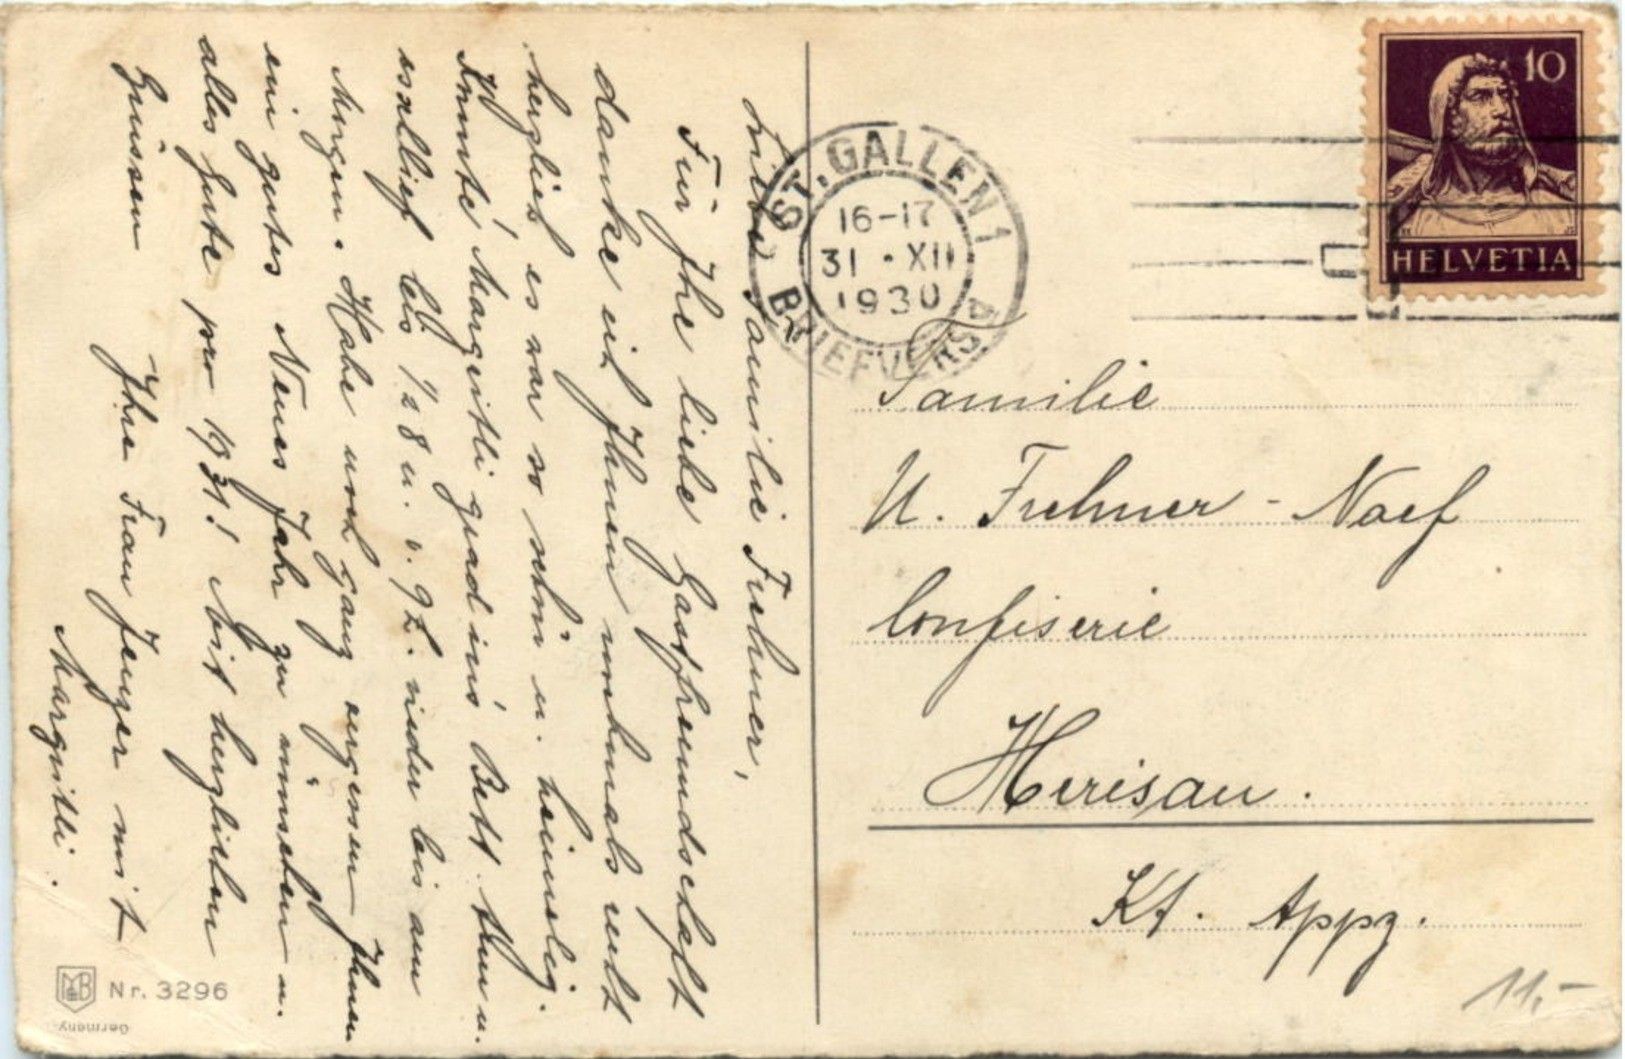 Liebe Familie Frehner,
Für Ihre liebe Gastfreundschaft
danke ich Ihnen nochmals recht
herzlich es war so schön u. heimelig.
Konnte Margritli grad ins Bett thun u.
es schlief bis ½ 8 u. v. 9 Z. wieder bis am
Morgen. Habe noch ganz vergessen Ihnen
ein gutes Neues Jahr zu wünschen u.
alles Gute pro 1931! Mit herzlichen
Grüssen
Ihre Frau Zenger mit
Margritli.
MB Nr. 3296
Germany
ST. GALLEN 1
16-17
31 · XII
1930
BRIEFVERS A
10
HELVETIA
Familie
U. Frehner - Naef
Confiserie
Herisau.
Kt. Appz.
11,-